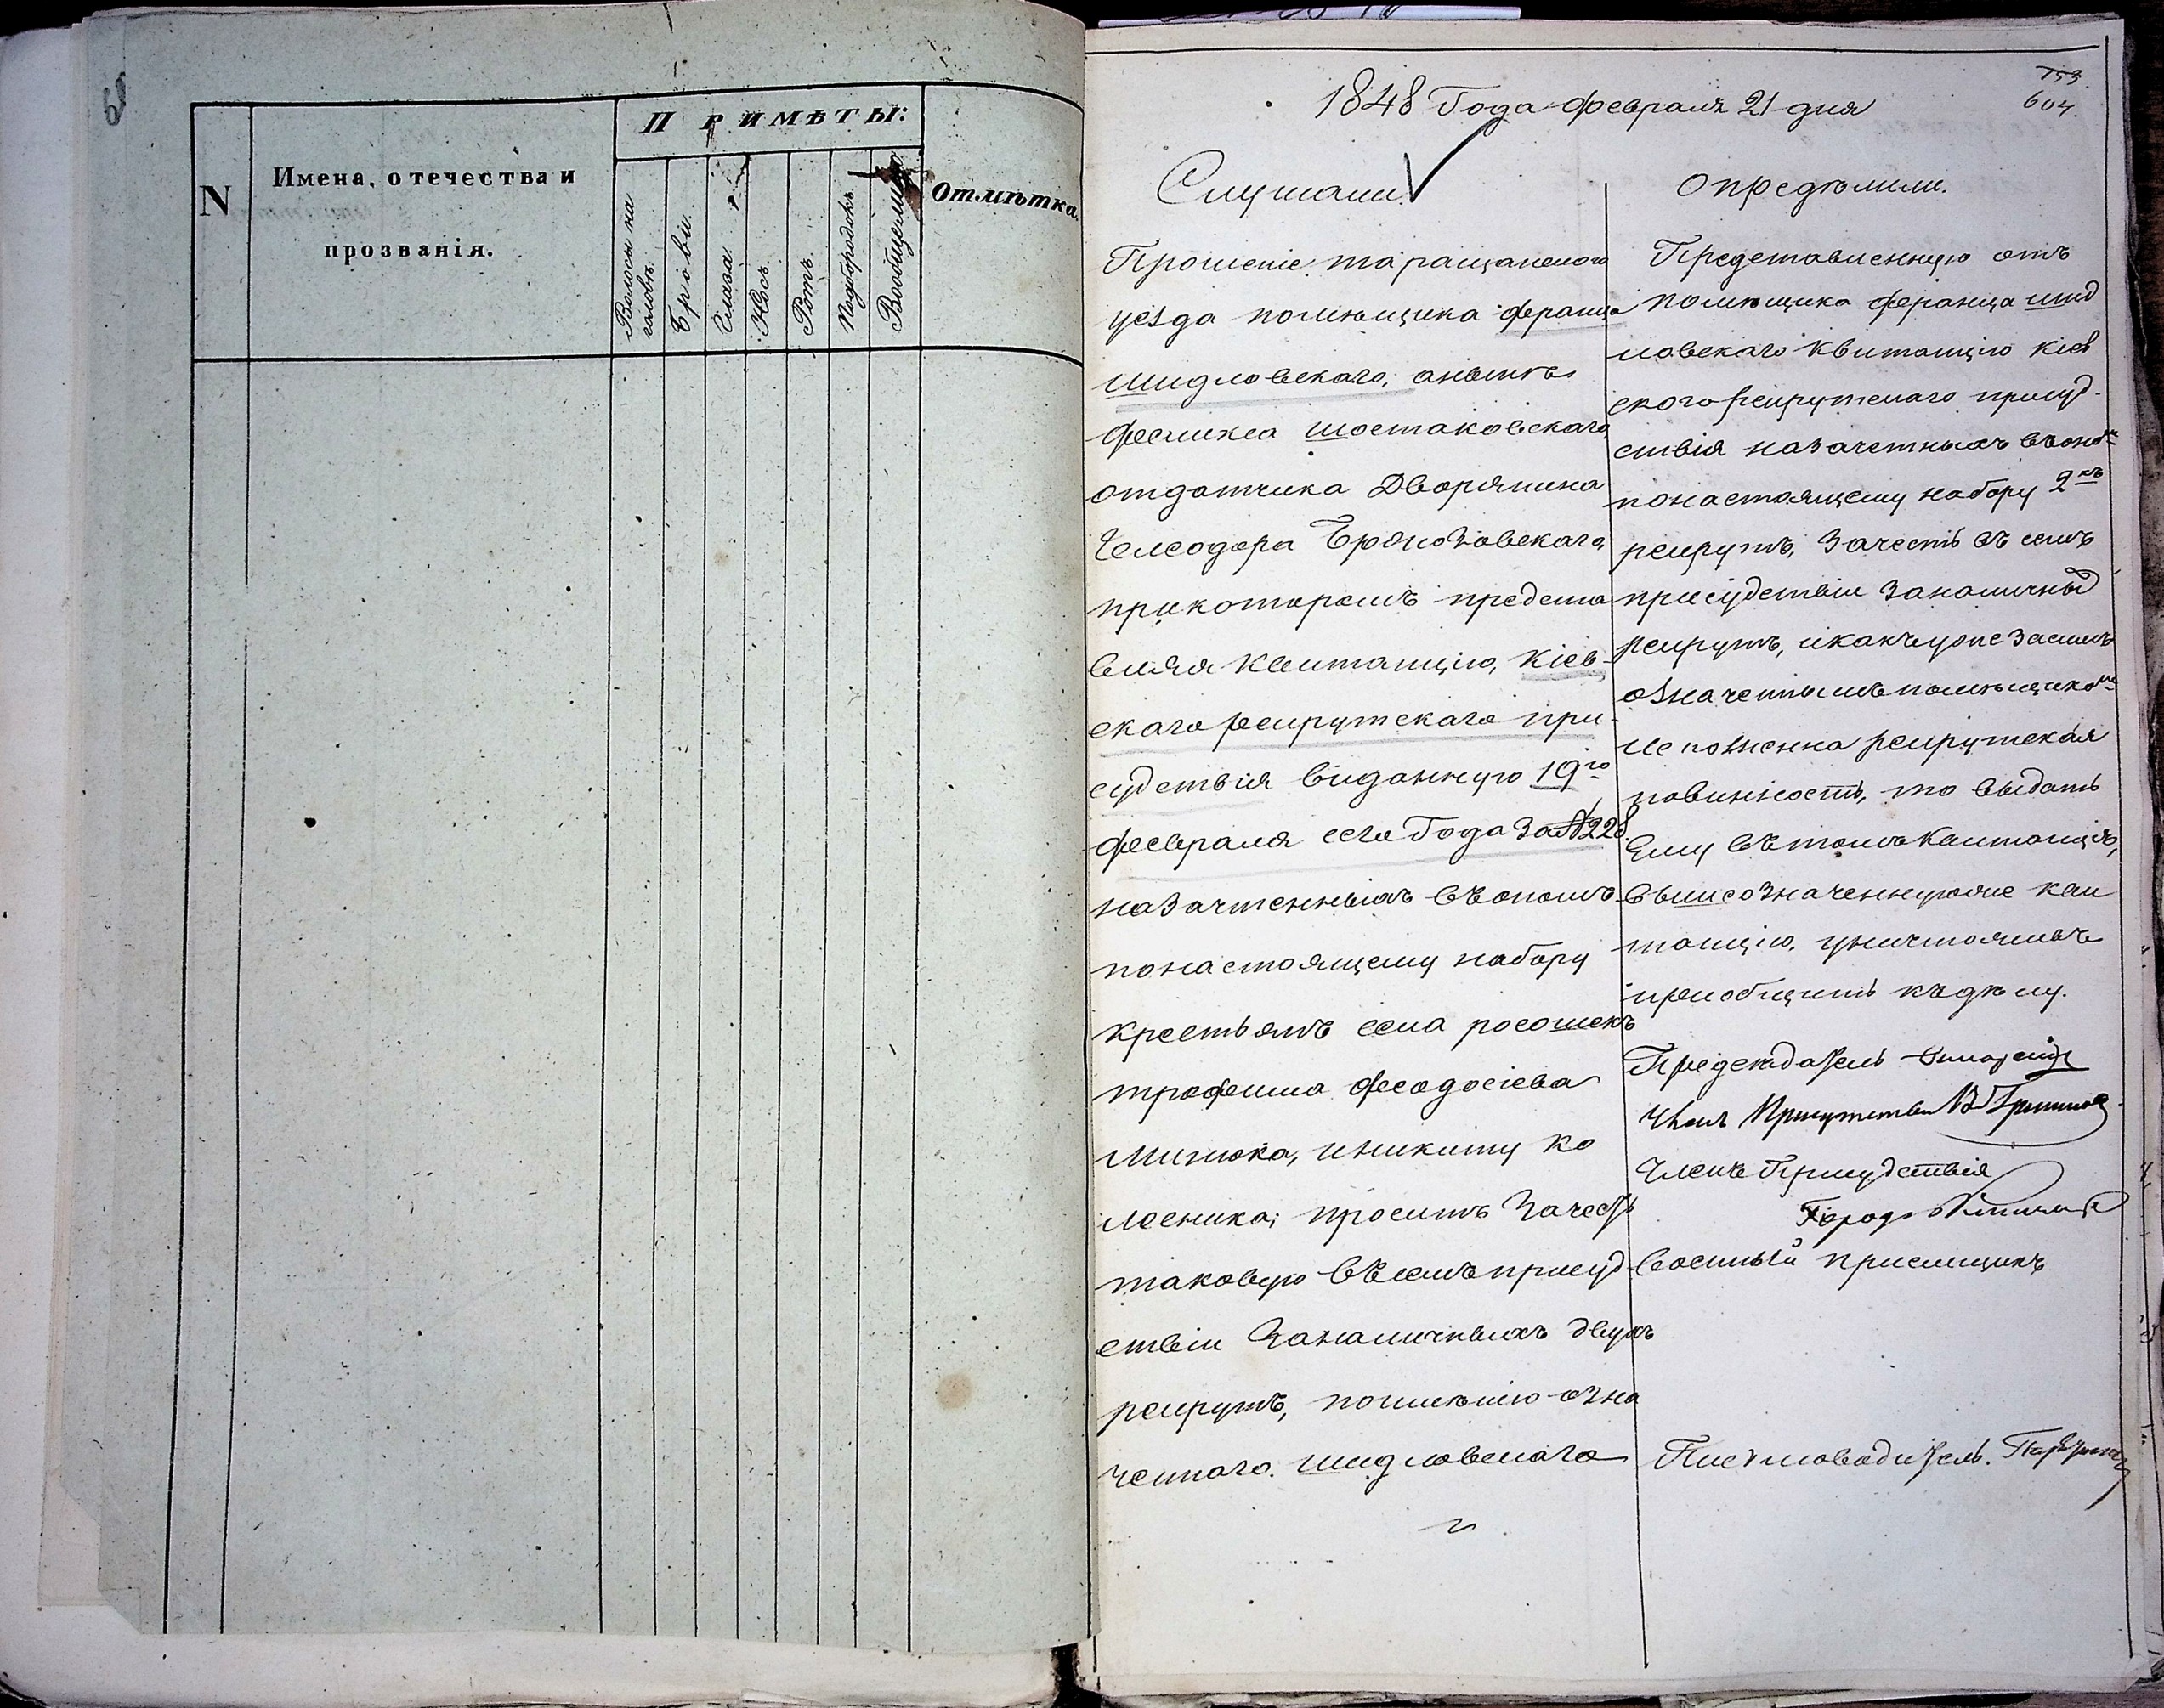 N
Имена, отечества и
прозванія.
ПРИМѢТЫ:
Волосы на
головѣ.
Брови.
Глаза.
Носъ.
Ротъ.
Подбородокъ.
Вообще
Отмѣтка.
753
604.
1848 Года февраля 21 дня
Слушали.
Прошеніе таращанского
уезда помѣщика франца
шидловскаго, анытѣ
феликса шостаковскаго
отдатчика Дворянина
прикоторомъ предста
вляя квитанцію, Кіев-
скаго рекрутскаго при-
судствія виданную 19го
февраля сего Года за №228.
назачтенныхъ въономъ
понастоящему набору
крестьянъ села росошекъ
трофима феодосіева
Минюка, иникиту ко
лесника; проситъ Зачесть
таковую въсемъ присуд-
ствіи Заналичныхъ двухъ
рекрутъ, поимѣнію озна
ченнаго. шидловскаго
Опредѣлили.
Представленную отъ
помѣщика франца шид
ловскаго Квитанцію кіев
ского рекрутскаго присуд-
ствія назачетныхъ въоно
понастоящему набору 2хъ
рекрутъ, Зачесть въ семъ
присудствіи Заналичных
рекрутъ, икакъ уже Засимъ
означеннымъ помѣщикомъ
исполненна рекрутская
повинность, то выдать
Ему въ томъ Квитанцію,
вышеозначеннуюже кви
танцію, уничтоживъ
приобщить къдѣлу.
Председатель
Членъ Присутствія
Членъ Присудствія
Военный приемщикъ
Писмоводитель.